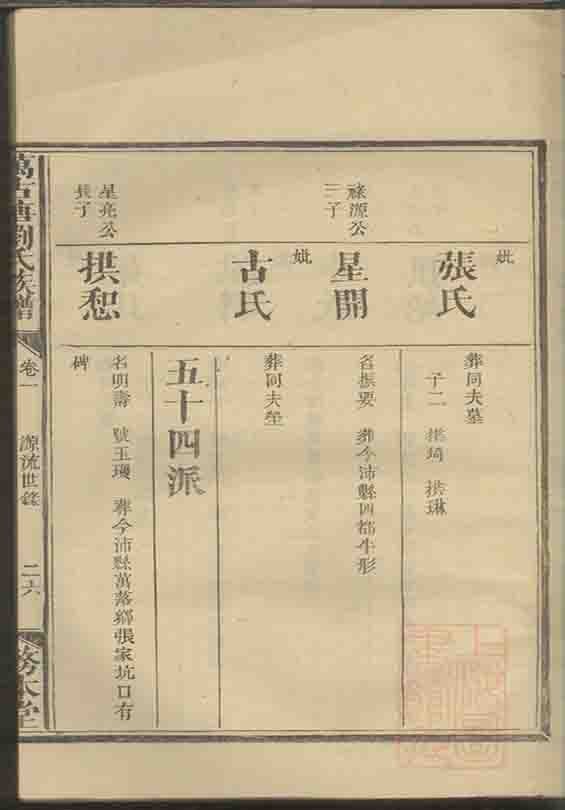 妣
張氏
葬同夫墓
子二 拱琦 拱琳
祿源公
三子
星開
名振要 葬今沛縣四都牛形
妣
古氏
葬同夫塋
五十四派
星亮公
長子
拱恕
名明壽 號玉璣 葬今沛縣萬落鄉張家坑口有
碑
萬古塘劉氏族譜
卷一
源流世錄
二六
務本堂